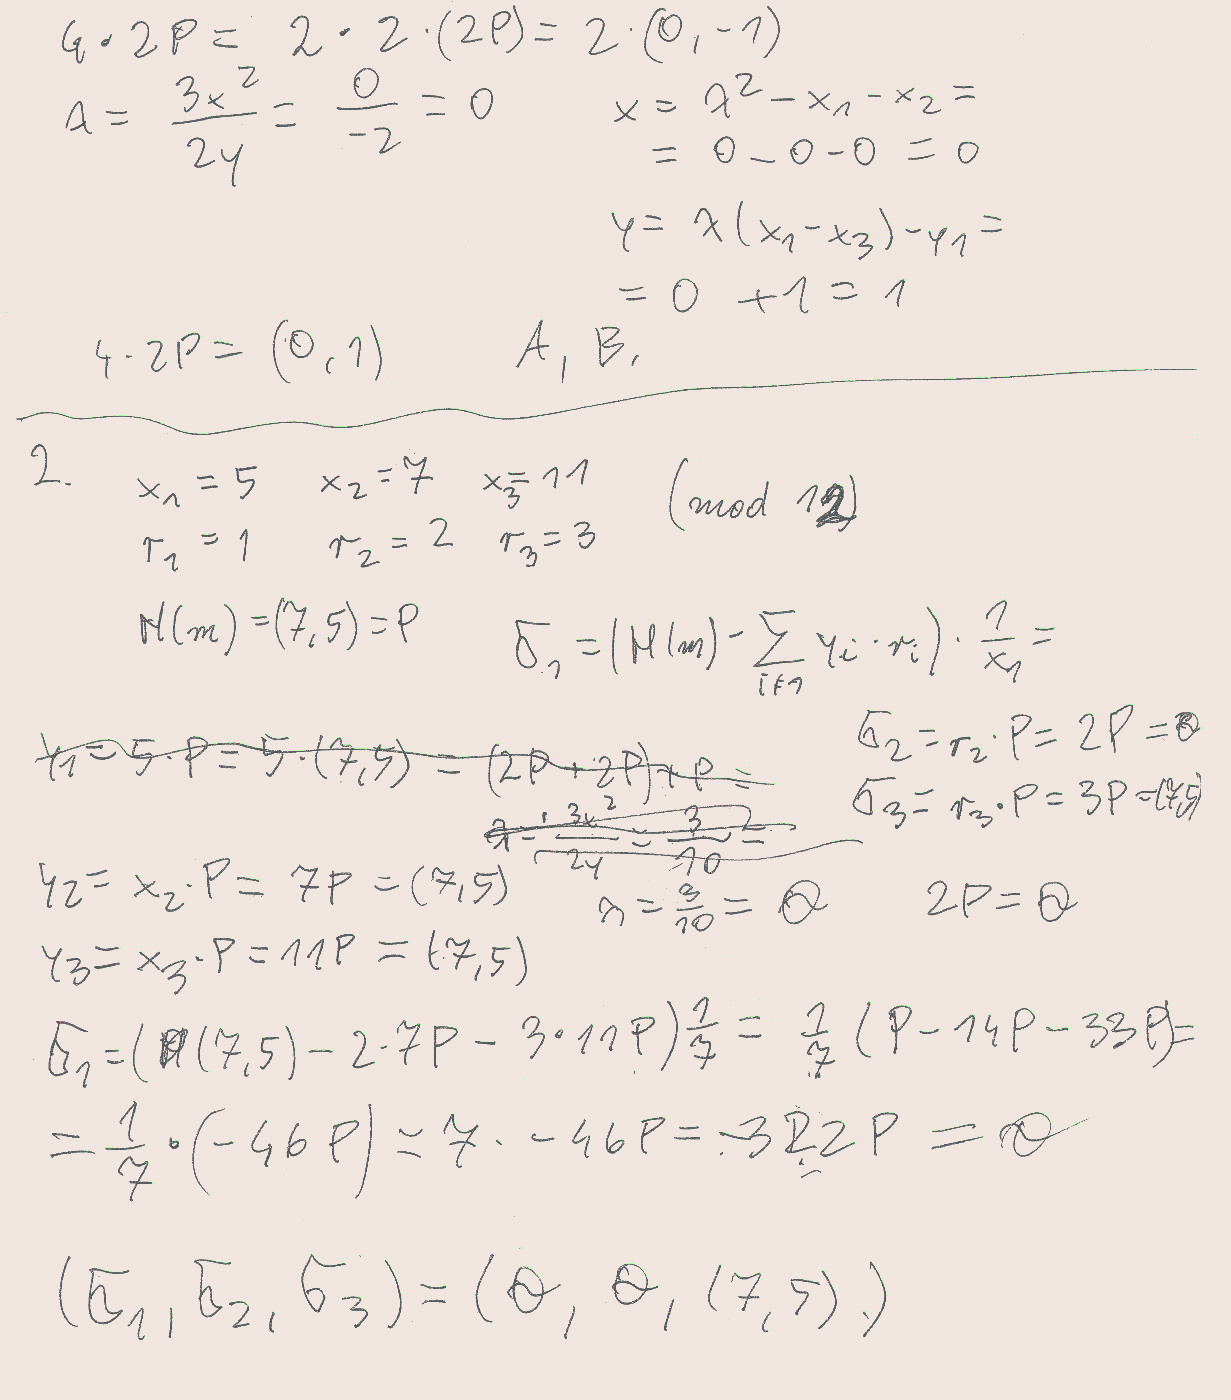 4 · 2P = 2 · 2 · (2P) = 2 · (0, -1)
λ = 3x²/2y = 0/-2 = 0
x = λ² - x₁ - x₂ =
= 0 - 0 - 0 = 0
y = λ(x₁ - x₃) - y₁ =
= 0 + 1 = 1
4 · 2P = (0, 1) A, B,
2. x₁ = 5 x₂ = 7 x₃ = 11 (mod 12)
r₁ = 1 r₂ = 2 r₃ = 3
H(m) = (7,5) = P
σ₁ = (H(m) - ∑_{i≠1} y_i · r_i) · 1/x₁ =
y₁ = 5 · P = 5 · (7,5) = (2P + 2P) + P =
σ₂ = r₂ · P = 2P = O
σ₃ = r₃ · P = 3P = (7,5)
λ = 3x²/2y = 3/10 =
y₂ = x₂ · P = 7P = (7,5)
λ = 3/10 = O 2P = O
y₃ = x₃ · P = 11P = (7,5)
σ₁ = ((7,5) - 2·7P - 3·11P) 1/7 = 1/7 (P - 14P - 33P) =
= 1/7 · (-46P) = 7 · -46P = -322P = O
(σ₁, σ₂, σ₃) = (O, O, (7,5))